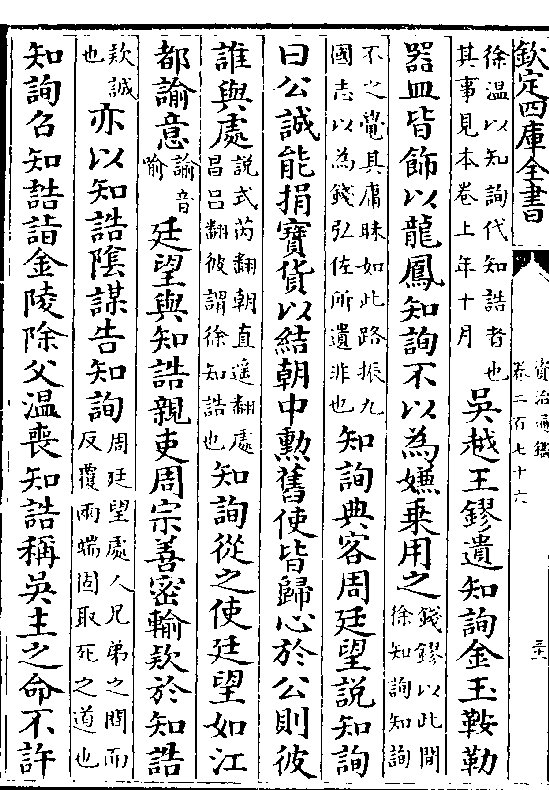 欽定四庫全書
資治通鑑
卷二百七十六
徐溫以知詢代知誥者也
其事見本卷上年十月
吳越王鏐遺知詢金玉鞍勒
器皿皆飾以龍鳳知詢不以為嫌乗用之
錢鏐以此間
徐知詢知詢
不之覺其庸昧如此路振九
國志以為錢弘佐所遺非也
知詢典客周廷望説知詢
曰公誠能捐寶貨以結朝中勲舊使皆歸心於公則彼
誰與處
説式芮翻朝直遥翻處
昌吕翻彼謂徐知誥也
知詢從之使廷望如江
都諭意
諭音
喻
廷望與知誥親吏周宗善密輸欵於知誥
欵誠
也
亦以知誥陰謀告知詢
周廷望處人兄弟之間而
反覆兩端固取死之道也
知詢召知誥詣金陵除父溫喪知誥稱吳主之命不許